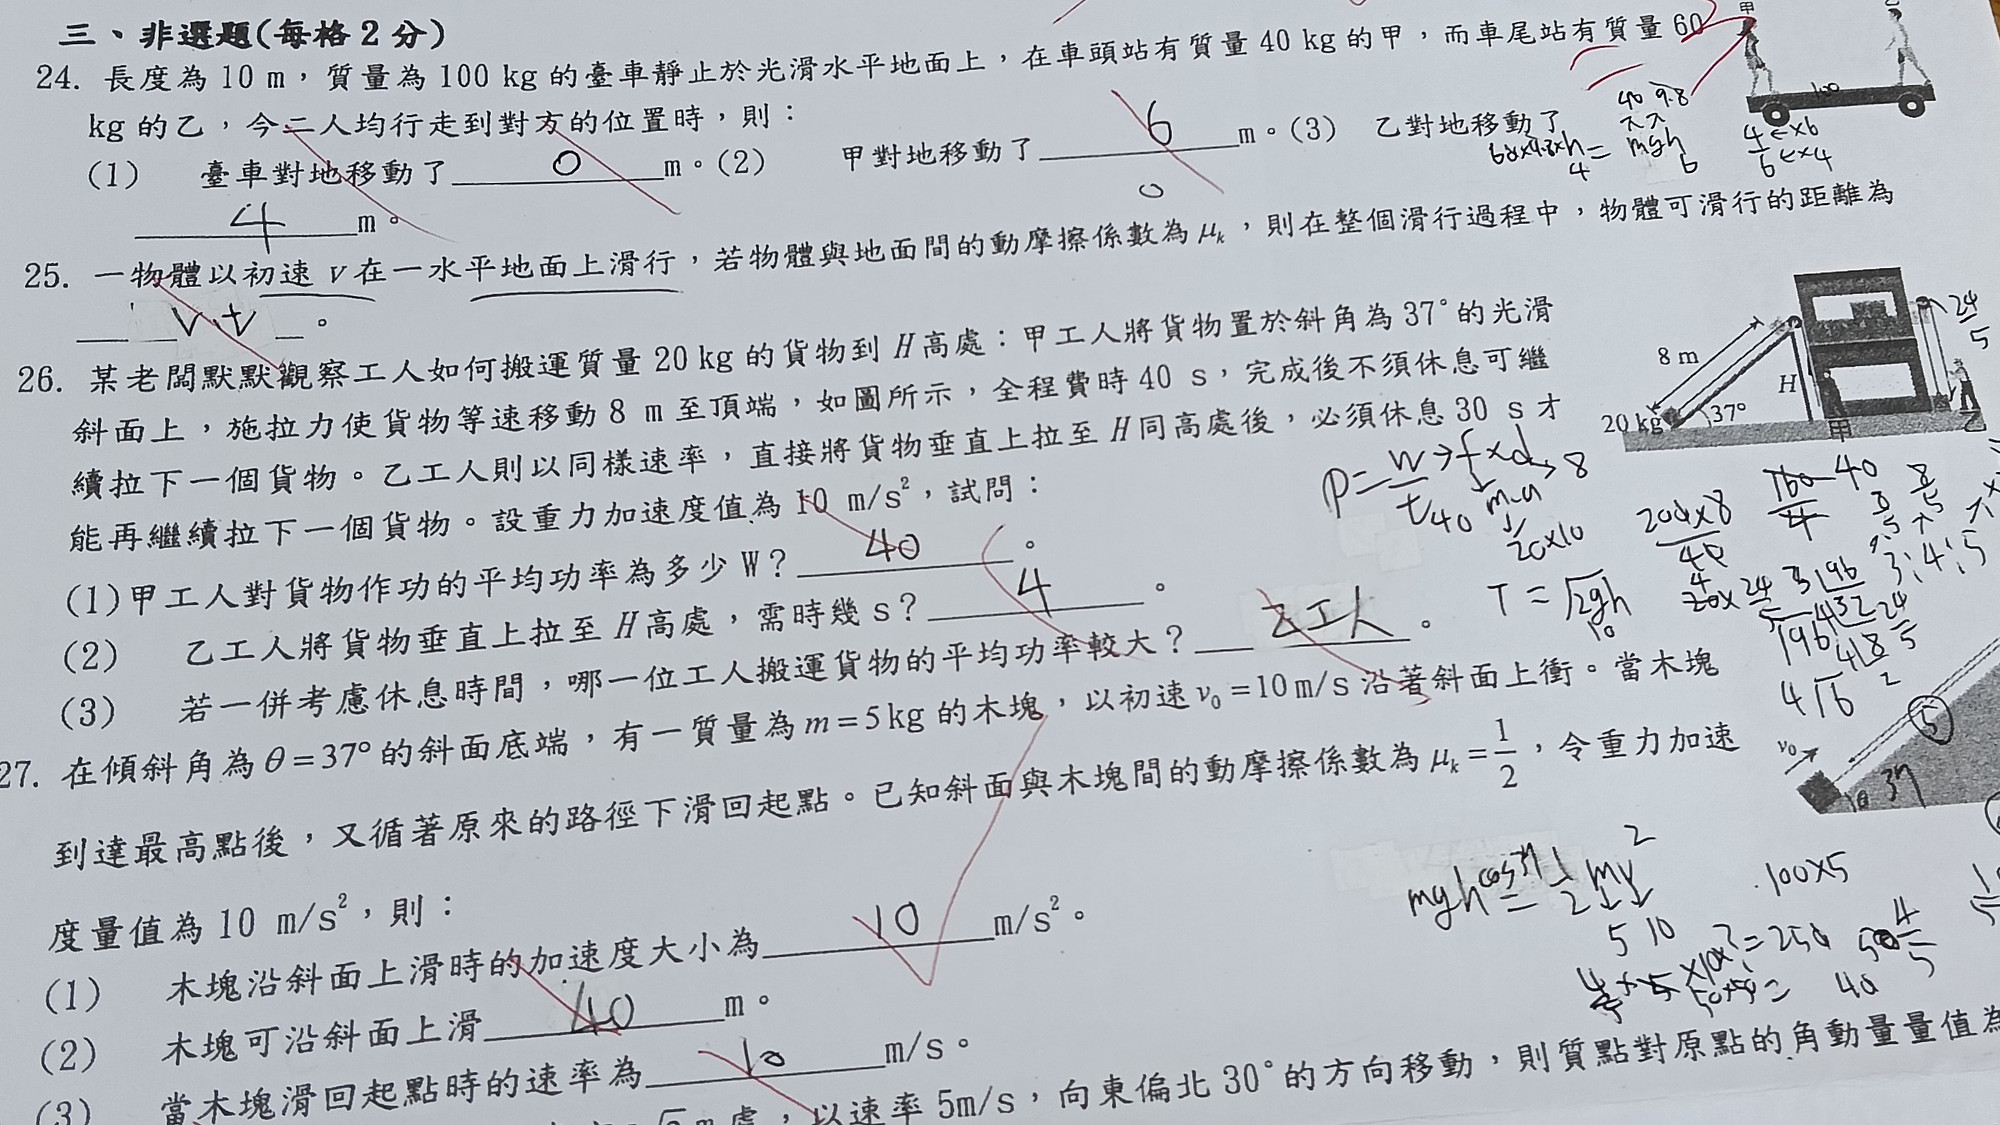 三、非選題(每格2分)
24. 長度為 10 m，質量為 100 kg 的臺車靜止於光滑水平地面上，在車頭站有質量 40 kg 的甲，而車尾站有質量 60
kg 的乙，今二人均行走到對方的位置時，則：
(1) 臺車對地移動了 0 m。(2) 甲對地移動了 6 m。(3) 乙對地移動了
4 m。
0
甲
100
40 9.8
mgh
60×9.8×h =
4
6
4 ←×6
6 ←×4
25. 一物體以初速 v 在一水平地面上滑行，若物體與地面間的動摩擦係數為 μk，則在整個滑行過程中，物體可滑行的距離為
vt 。
26. 某老闆默默觀察工人如何搬運質量 20 kg 的貨物到 H 高處：甲工人將貨物置於斜角為 37° 的光滑
斜面上，施拉力使貨物等速移動 8 m 至頂端，如圖所示，全程費時 40 s，完成後不須休息可繼
續拉下一個貨物。乙工人則以同樣速率，直接將貨物垂直上拉至 H 同高處後，必須休息 30 s 才
能再繼續拉下一個貨物。設重力加速度值為 10 m/s²，試問：
(1)甲工人對貨物作功的平均功率為多少 W？ 40 。
(2) 乙工人將貨物垂直上拉至 H 高處，需時幾 s？ 4 。
(3) 若一併考慮休息時間，哪一位工人搬運貨物的平均功率較大？ 乙工人 。
8 m
H
20 kg
37°
甲
乙
24
5
P=W/t→f×d→8
40
m.a
20×10
T=√2gh
10
200×8
40
160
4
40
3:4:5
27. 在傾斜角為 θ=37° 的斜面底端，有一質量為 m=5 kg 的木塊，以初速 v₀=10 m/s 沿著斜面上衝。當木塊
到達最高點後，又循著原來的路徑下滑回起點。已知斜面與木塊間的動摩擦係數為 μk=1/2，令重力加速
度量值為 10 m/s²，則：
(1) 木塊沿斜面上滑時的加速度大小為 10 m/s²。
(2) 木塊可沿斜面上滑 40 m。
(3) 當木塊滑回起點時的速率為 10 m/s。
v₀
θ 37
5
mgh cos37 = 1/2 mv²
5 10
100×5
40
處，以速率 5m/s，向東偏北 30° 的方向移動，則質點對原點的角動量量值為